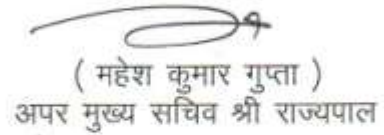 ( महेश कुमार गुप्ता )
अपर मुख्य सचिव श्री राज्यपाल